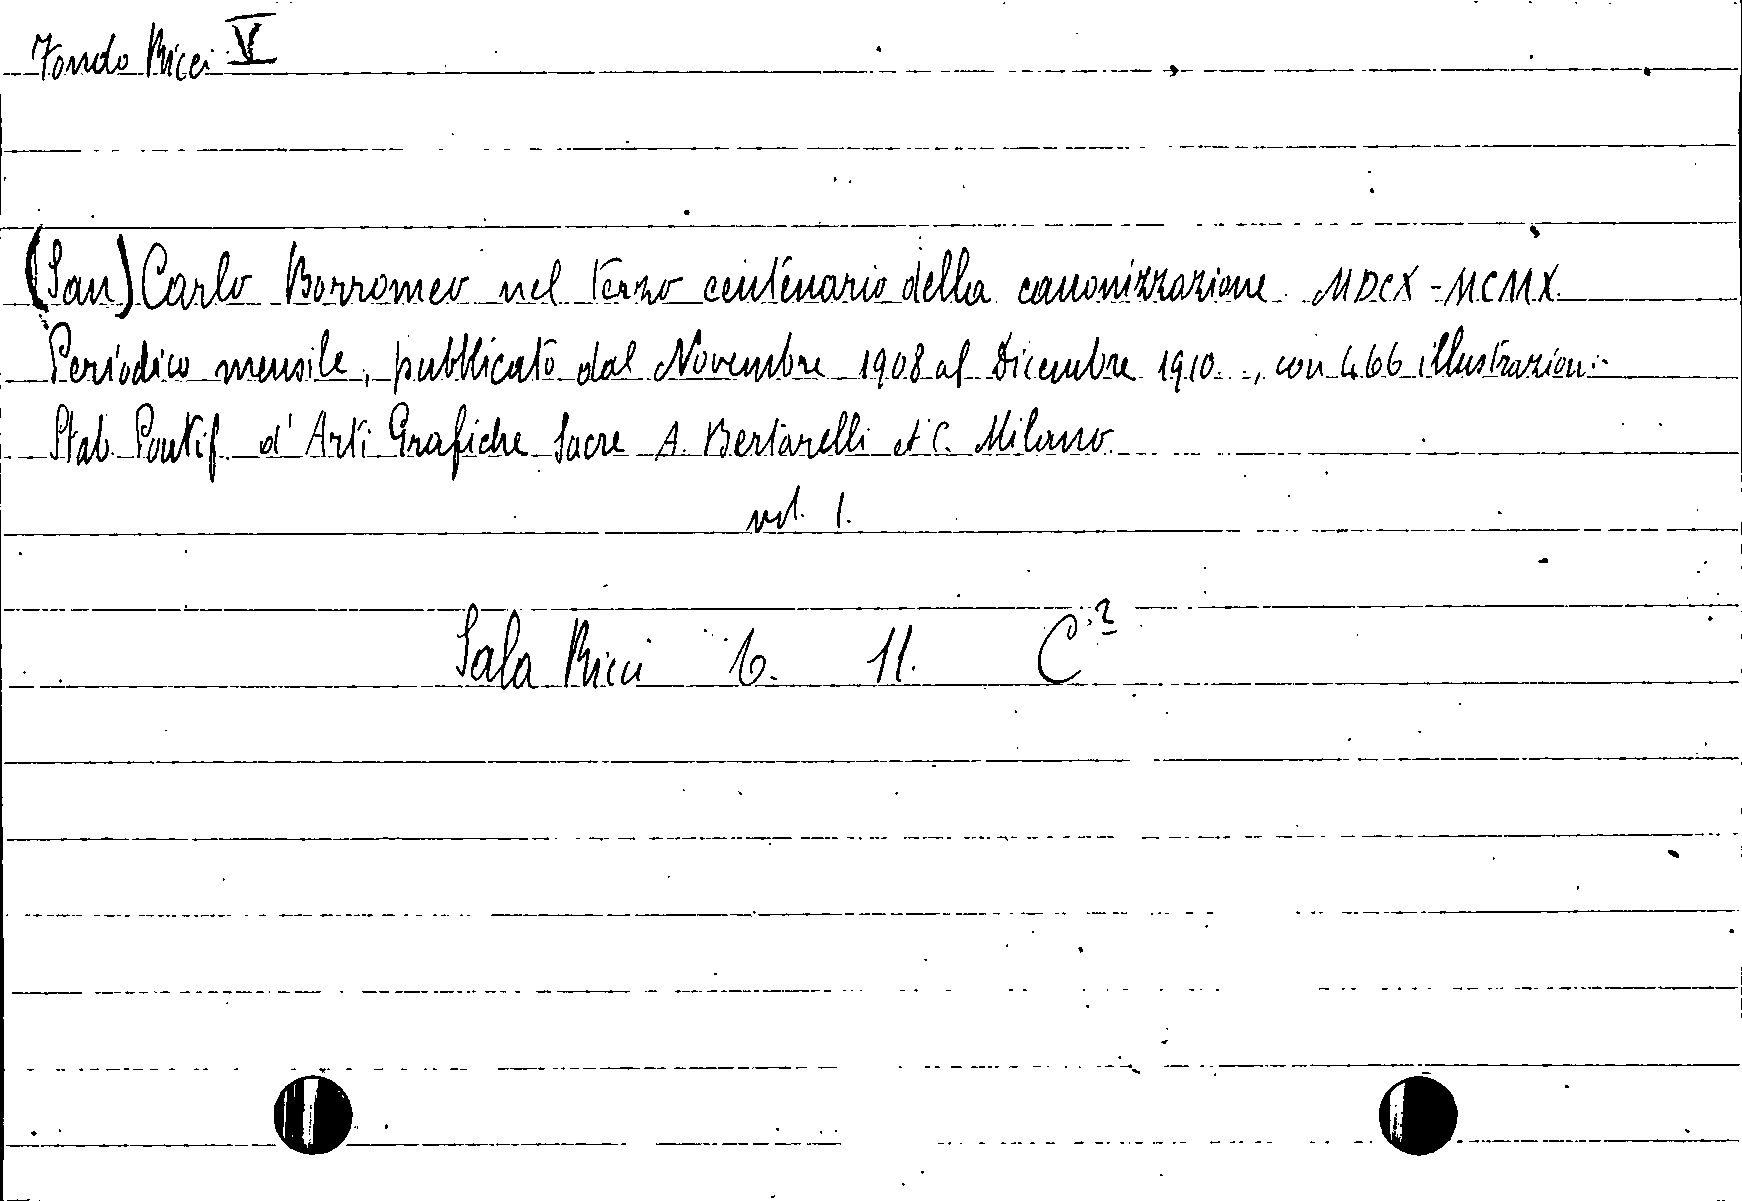 Fondo Ricci V
(San) Carlo Borromeo nel terzo centenario della canonizzazione MDCX - MCMX.
Periodico mensile, pubblicato dal Novembre 1908 al Dicembre 1910., con 466 illustrazioni.
Stab. Pontif. d'Arti Grafiche Sacre A. Bertarelli et C. Milano.
vol. 1.
Sala Ricci 6. 11. C²